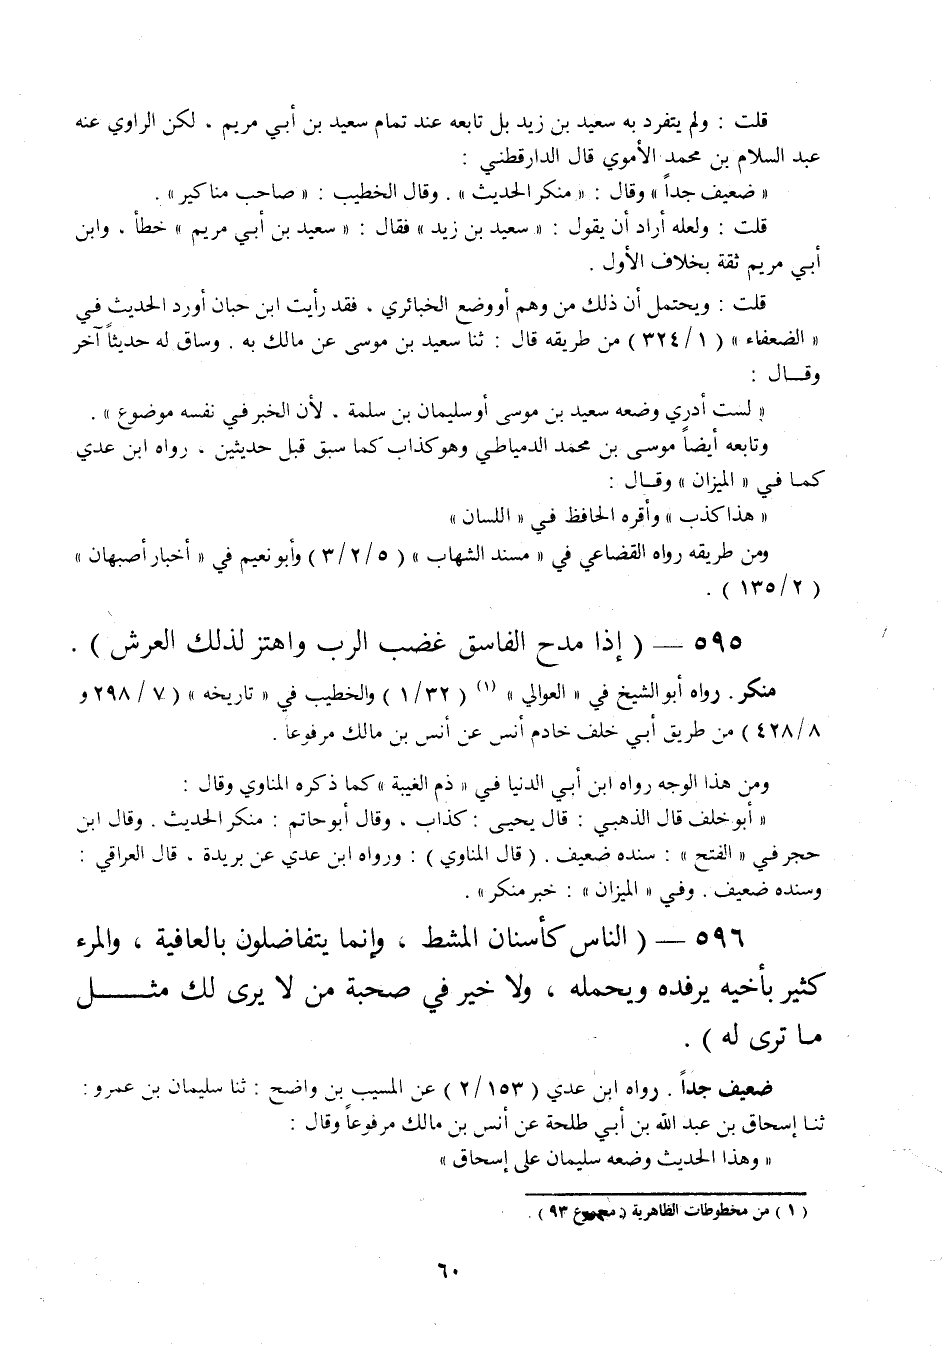 قلت : ولم يتفرد به سعيد بن زيد بل تابعه عند تمام سعيد بن أبي مريم ، لكن الراوي عنه
عبد السلام بن محمد الأموي قال الدارقطني :
« ضعيف جداً » وقال : « منكر الحديث » . وقال الخطيب : « صاحب مناكير » .
قلت : ولعله أراد أن يقول : « سعيد بن زيد » فقال : « سعيد بن أبي مريم » خطأ ، وابن
أبي مريم ثقة بخلاف الأول .
قلت : ويحتمل أن ذلك من وهم أو وضع الخبائري ، فقد رأيت ابن حبان أورد الحديث في
« الضعفاء » ( ١/ ٣٢٤ ) من طريقه قال : ثنا سعيد بن موسى عن مالك به . وساق له حديثاً آخر
وقــال :
« لست أدري وضعه سعيد بن موسى أو سليمان بن سلمة ، لأن الخبر في نفسه موضوع » .
وتابعه أيضاً موسى بن محمد الدمياطي وهو كذاب كما سبق قبل حديثين ، رواه ابن عدي
كمـا في « الميزان » وقــال :
« هذا كذب » وأقره الحافظ في « اللسان »
ومن طريقه رواه القضاعي في « مسند الشهاب » ( ٣/٢/٥ ) وأبو نعيم في « أخبار أصبهان »
( ١٣٥/٢ ) .
٥٩٥ — ( إذا مدح الفاسق غضب الرب واهتز لذلك العرش ) .
منكر . رواه أبو الشيخ في « العوالي » (١) ( ١/٣٢ ) والخطيب في « تاريخه » ( ٧ / ٢٩٨ و
٤٢٨/٨ ) من طريق أبي خلف خادم أنس عن أنس بن مالك مرفوعاً .
ومن هذا الوجه رواه ابن أبي الدنيا في « ذم الغيبة » كما ذكره المناوي وقال :
« أبو خلف قال الذهبي : قال يحيى : كذاب ، وقال أبو حاتم : منكر الحديث . وقال ابن
حجر في « الفتح » : سنده ضعيف . ( قال المناوي ) : ورواه ابن عدي عن بريدة ، قال العراقي :
وسنده ضعيف . وفي « الميزان » : خبر منكر » .
٥٩٦ — ( الناس كأسنان المشط ، وإنما يتفاضلون بالعافية ، والمرء
كثير بأخيه يرفده ويحمله ، ولا خير في صحبة من لا يرى لك مثــــل
مـا ترى له ) .
ضعيف جداً . رواه ابن عدي ( ٢/١٥٣ ) عن المسيب بن واضح : ثنا سليمان بن عمرو :
ثنـا إسحاق بن عبد الله بن أبي طلحة عن أنس بن مالك مرفوعاً وقال :
« وهذا الحديث وضعه سليمان على إسحاق »
( ١ ) من مخطوطات الظاهرية ( مجموع ٩٣ ) .
٦٠